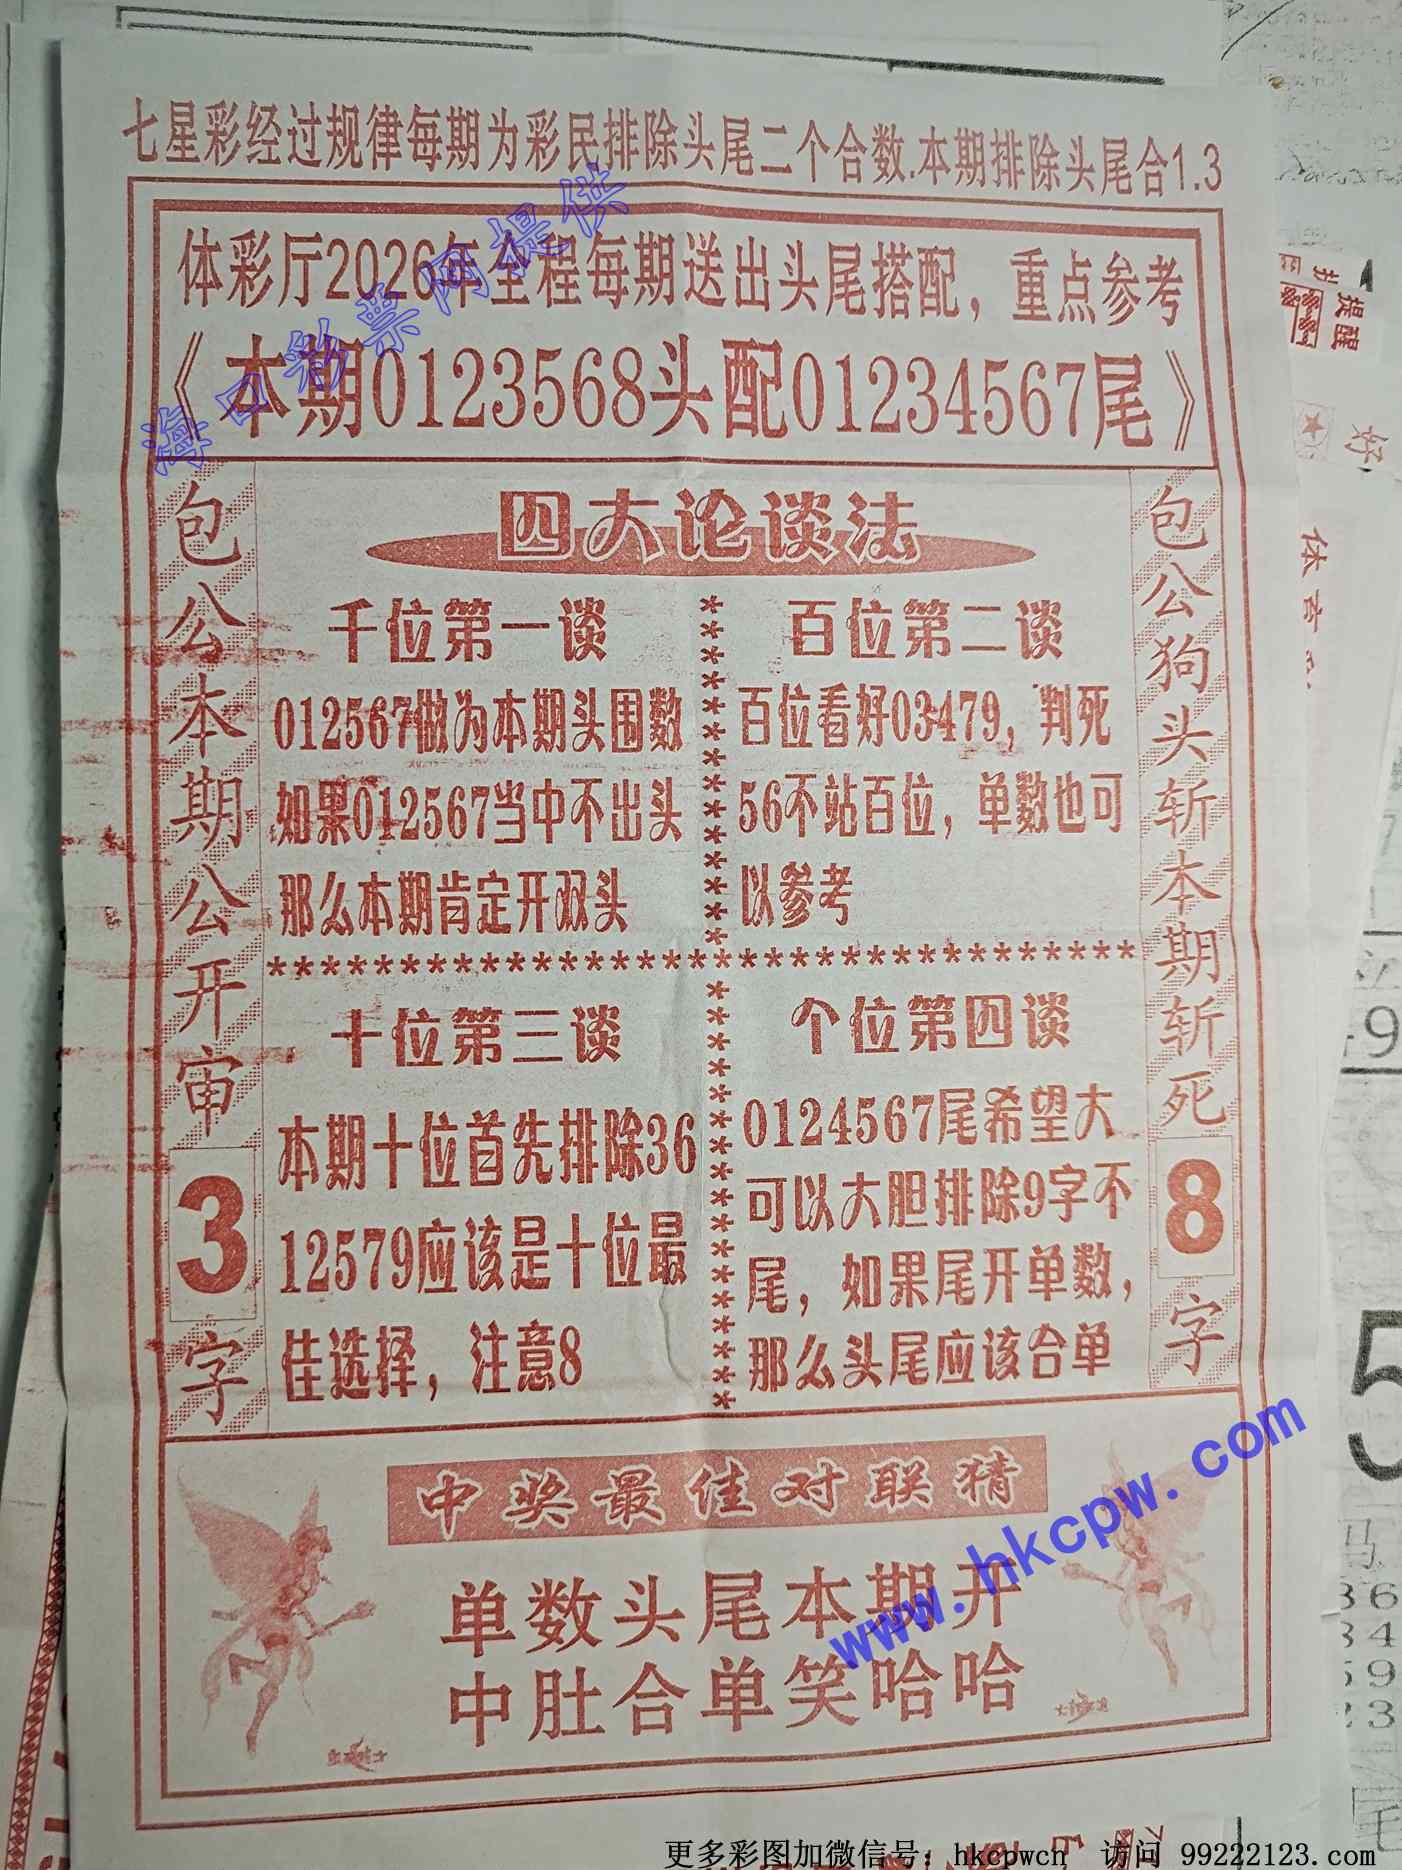 七星彩经过规律每期为彩民排除头尾二个合数.本期排除头尾合1.3
体彩厅2026年全程每期送出头尾搭配，重点参考
《本期0123568头配01234567尾》
海口彩票网提供
包公本期公开审3字
四大论谈法
千位第一谈
012567做为本期头围数
如果012567当中不出头
那么本期肯定开双头
百位第二谈
百位看好03479，判死
56不站百位，单数也可
以参考
十位第三谈
本期十位首先排除36
12579应该是十位最
佳选择，注意8
个位第四谈
0124567尾希望大
可以大胆排除9字不
尾，如果尾开单数，
那么头尾应该合单
包公狗头斩本期斩死8字
中奖最佳对联猜
单数头尾本期开
中肚合单笑哈哈
www.hkcpw.com
提醒
好
5
更多彩图加微信号：hkcpwcn 访问 99222123.com